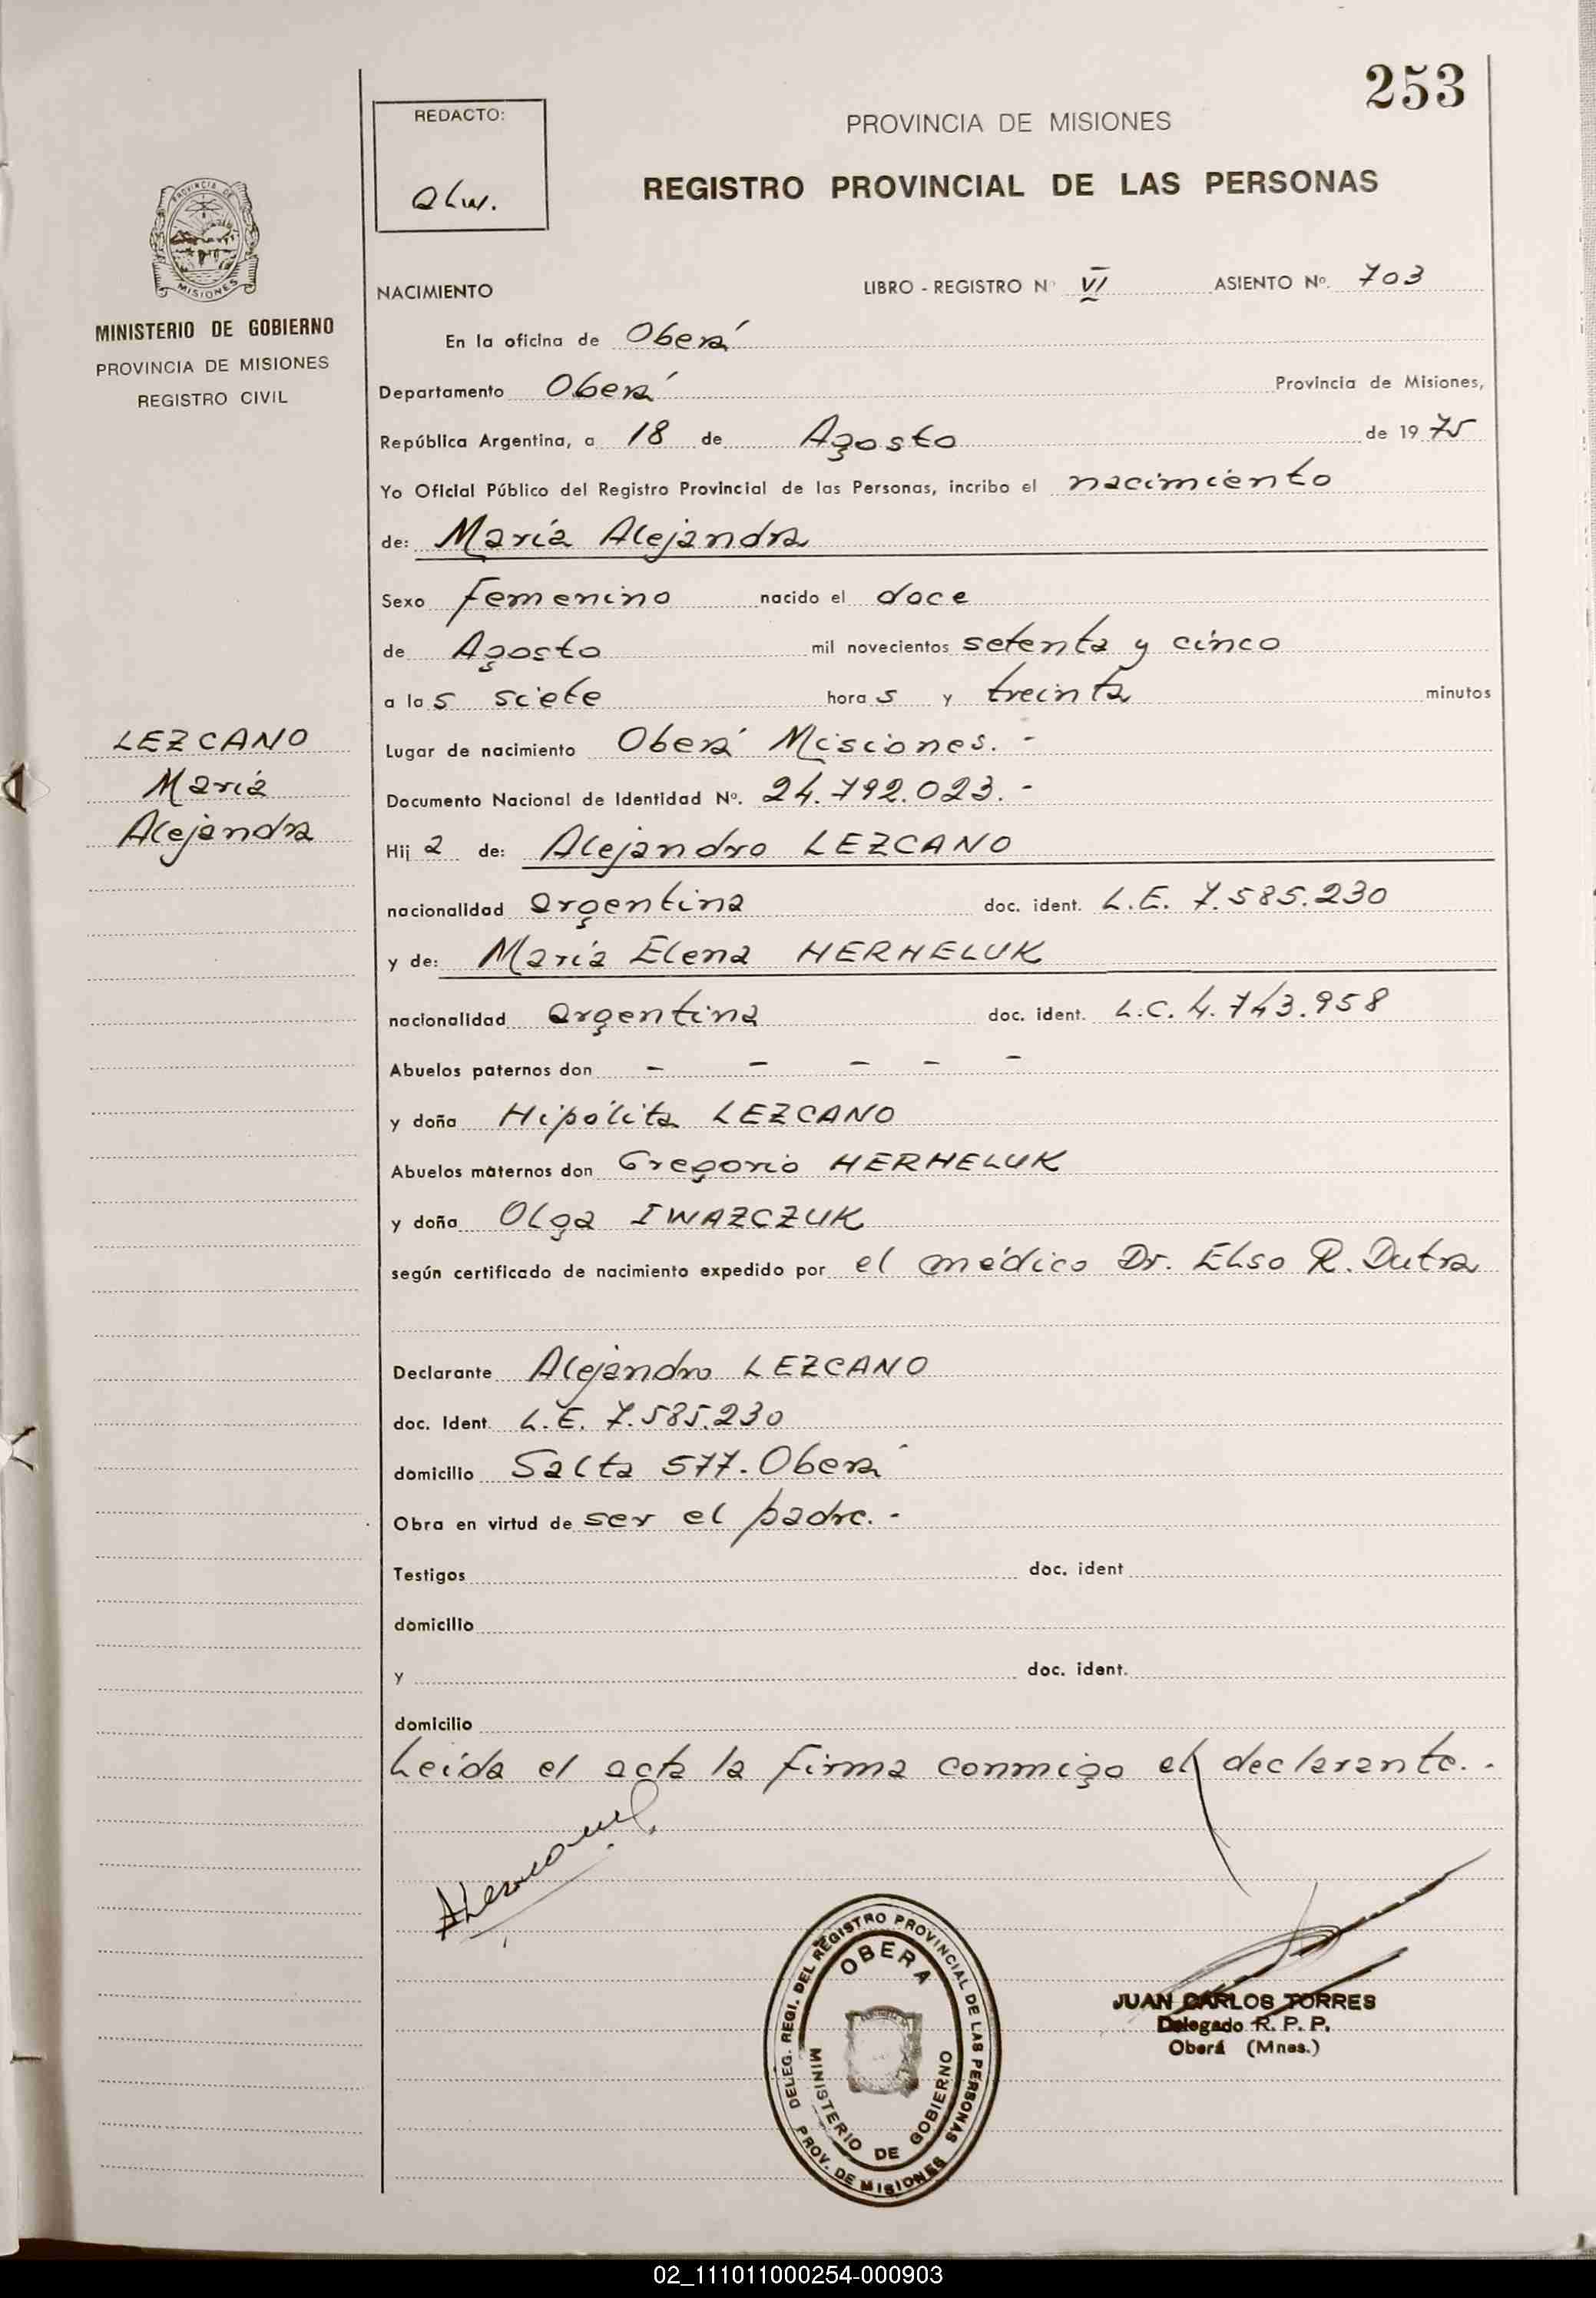 253
REDACTO:
PROVINCIA DE MISIONES
REGISTRO PROVINCIAL DE LAS PERSONAS
PROVINCIA DE
MISIONES
MINISTERIO DE GOBIERNO
PROVINCIA DE MISIONES
REGISTRO CIVIL
NACIMIENTO LIBRO - REGISTRO Nº VI ASIENTO Nº. 703
En la oficina de Oberá
Departamento Oberá Provincia de Misiones,
República Argentina, a 18 de Agosto de 1975
Yo Oficial Público del Registro Provincial de las Personas, incribo el nacimiento
de: María Alejandra
Sexo femenino nacido el doce
de Agosto mil novecientos setenta y cinco
a las siete horas y treinta minutos
Lugar de nacimiento Oberá Misiones. -
Documento Nacional de Identidad Nº. 24.792.023. -
LEZCANO
María
Alejandra
Hija de: Alejandro LEZCANO
nacionalidad argentina doc. ident. L.E. 7.585.230
y de: María Elena HERHELUK
nacionalidad argentina doc. ident. L.C. 4.743.958
Abuelos paternos don - - - - -
y doña Hipólita LEZCANO
Abuelos maternos don Gregorio HERHELUK
y doña Olga IWAZCZUK
según certificado de nacimiento expedido por el médico Dr. Elso R. Dutra
Declarante Alejandro LEZCANO
doc. Ident. L.E. 7.585.230
domicilio Salta 577. Oberá
Obra en virtud de ser el padre. -
Testigos doc. ident
domicilio
y doc. ident.
domicilio
Leída el acta la firma conmigo el declarante. -
DELEG. REGI. DEL REGISTRO PROVINCIAL DE LAS PERSONAS
PROV. DE MISIONES
OBERA
MINISTERIO DE GOBIERNO
JUAN CARLOS TORRES
Delegado R. P. P.
Oberá (Mnes.)
02_111011000254-000903